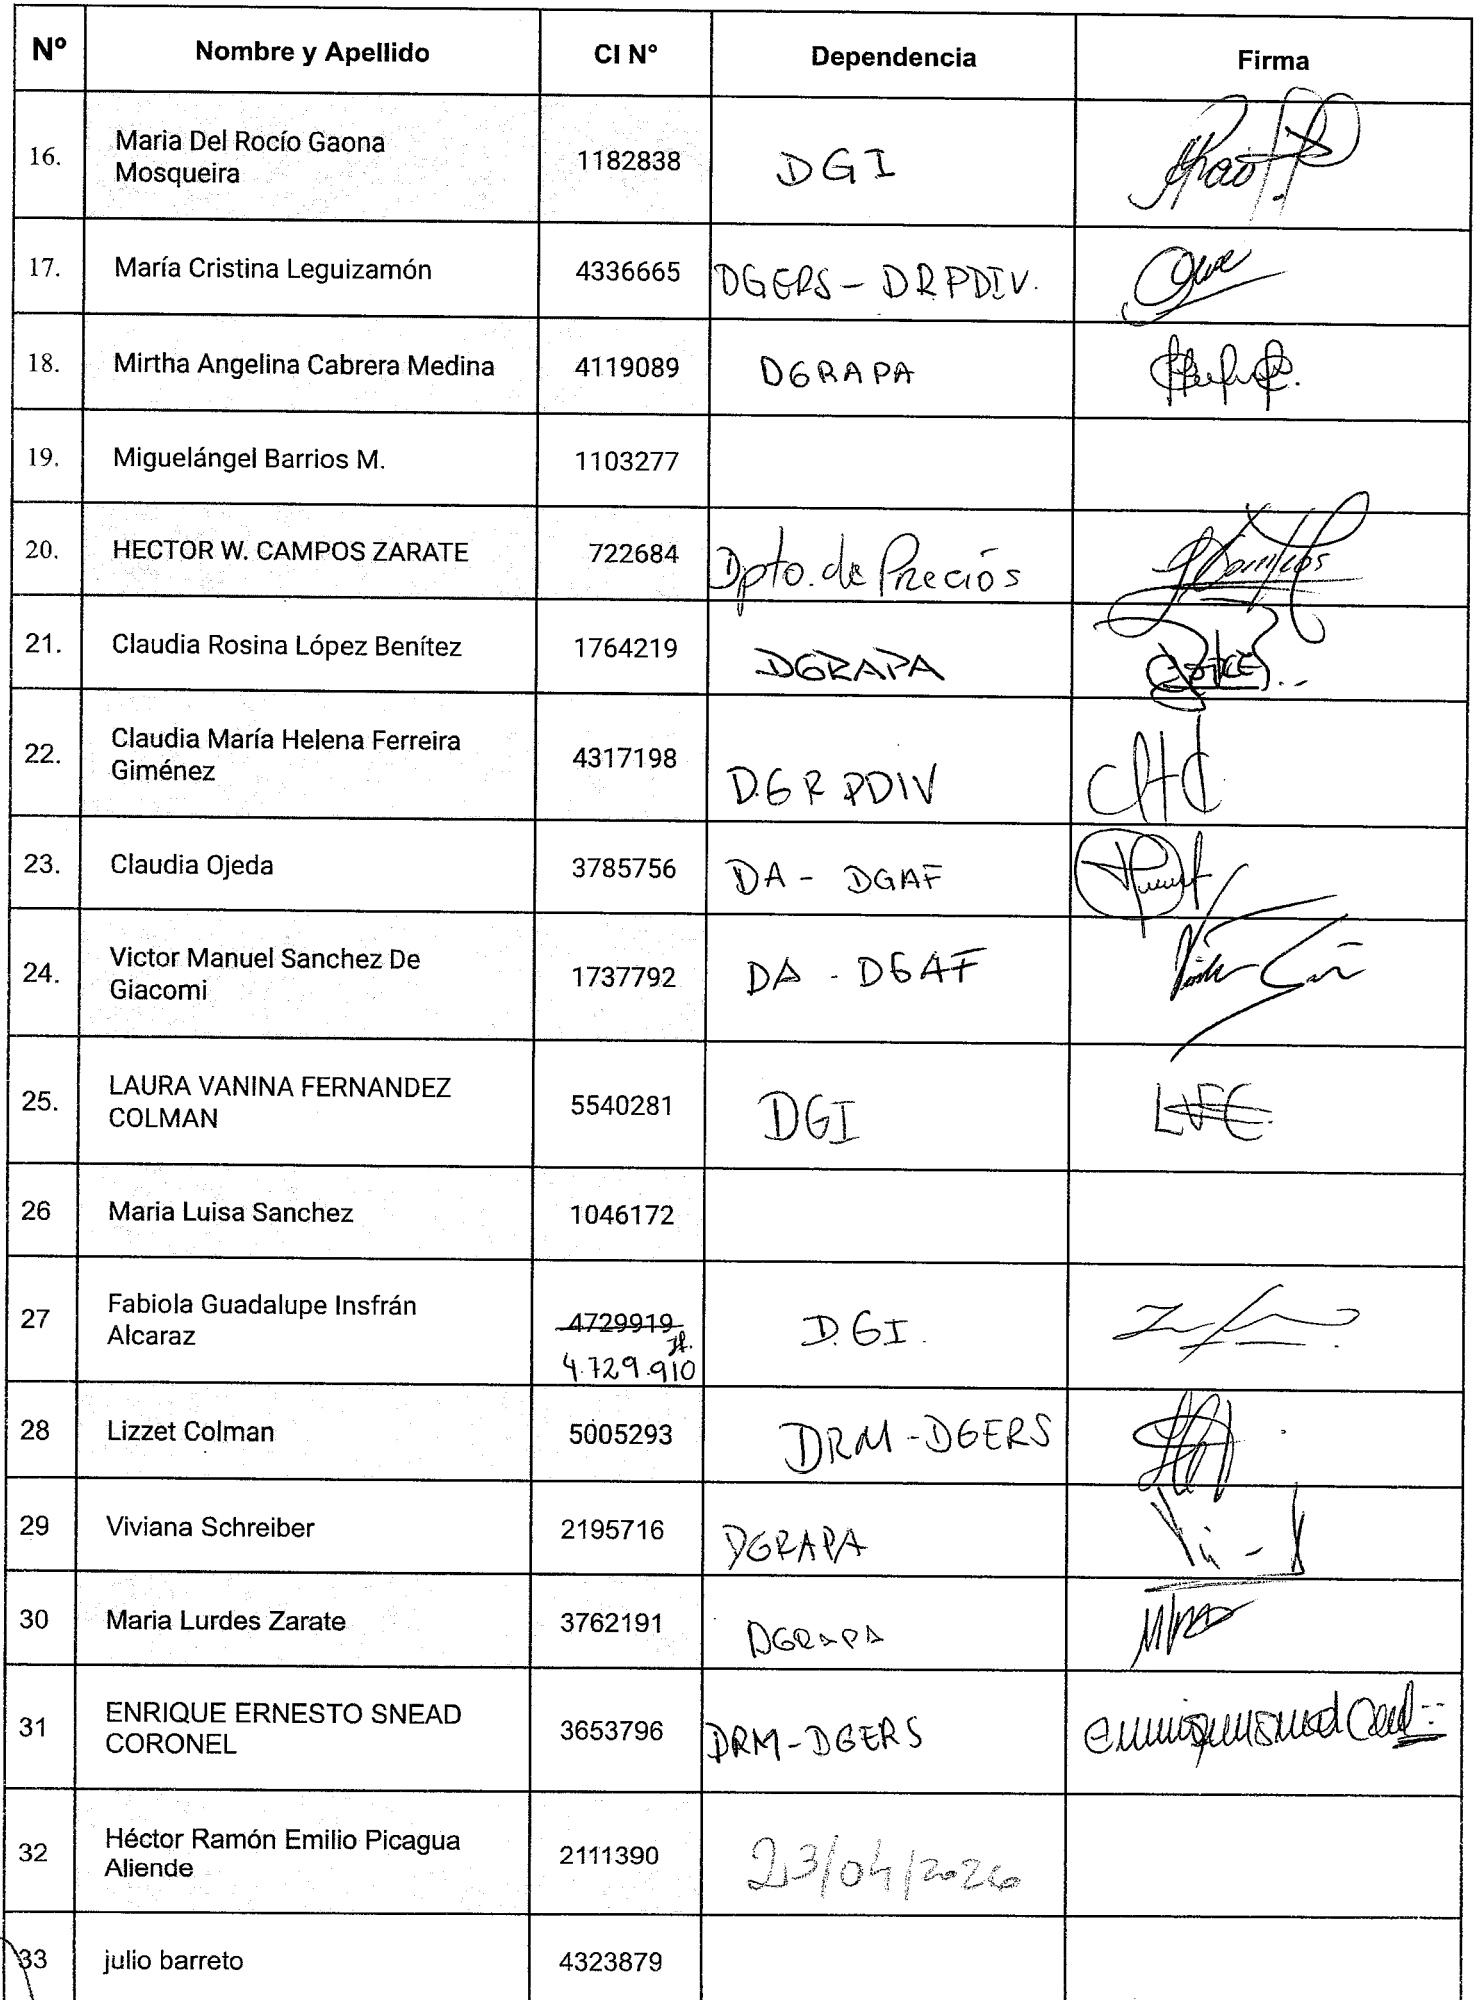 Nº Nombre y Apellido CI N° Dependencia Firma
16. Maria Del Rocío Gaona Mosqueira 1182838 DGI
17. María Cristina Leguizamón 4336665 DGERS - DRPDIV.
18. Mirtha Angelina Cabrera Medina 4119089 DGRAPA
19. Miguelángel Barrios M. 1103277
20. HECTOR W. CAMPOS ZARATE 722684 Dpto. de Precios
21. Claudia Rosina López Benítez 1764219 DGRAPA
22. Claudia María Helena Ferreira Giménez 4317198 DGR PDIV
23. Claudia Ojeda 3785756 DA - DGAF
24. Victor Manuel Sanchez De Giacomi 1737792 DA - DGAF
25. LAURA VANINA FERNANDEZ COLMAN 5540281 DGI
26 Maria Luisa Sanchez 1046172
27 Fabiola Guadalupe Insfrán Alcaraz 4729919 4.729.910 D.GI.
28 Lizzet Colman 5005293 DRM - DGERS
29 Viviana Schreiber 2195716 DGRAPA
30 Maria Lurdes Zarate 3762191 DGRAPA
31 ENRIQUE ERNESTO SNEAD CORONEL 3653796 DRM - DGERS
32 Héctor Ramón Emilio Picagua Aliende 2111390 23/04/2026
33 julio barreto 4323879